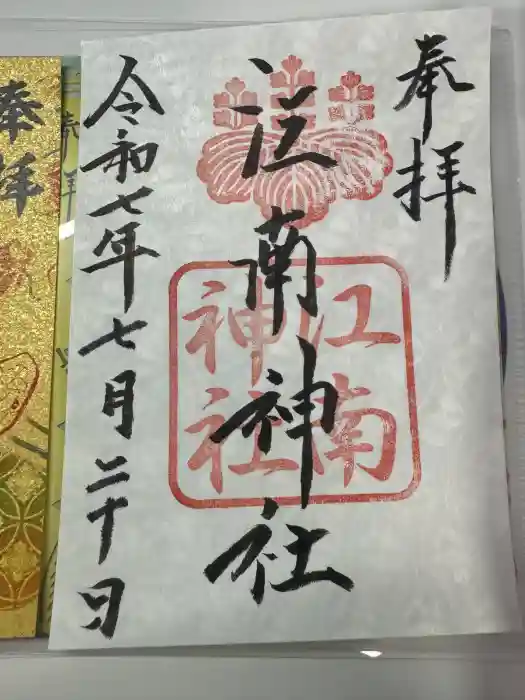 奉拝
江南神社
江南
神社
令和七年七月二十日
奉拝